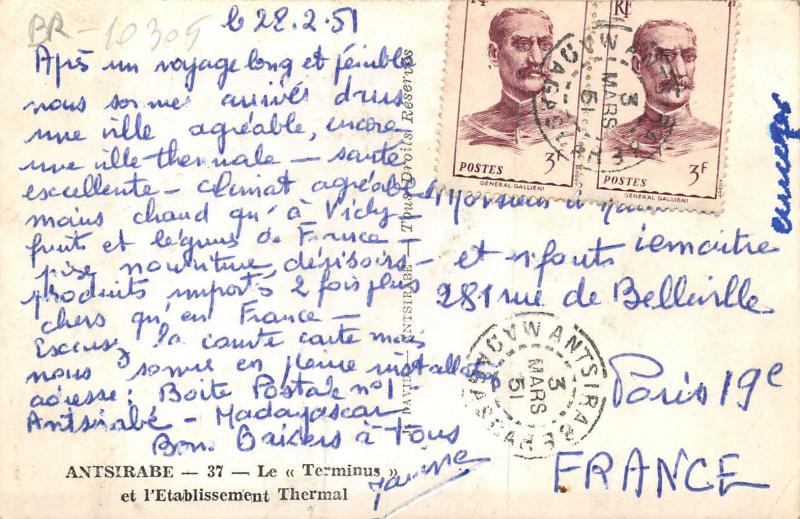 BR-10305
le 28.2.51
Après un voyage long et pénible
nous sommes arrivés dans
une ville agréable, encore
une ville thermale – santé
excellente – climat agréable
moins chaud qu'à Vichy –
fruits et légumes de France –
prix nourriture dérisoire –
produits importés 2 fois plus
chers qu'en France –
Excusez la courte carte mais
nous sommes en pleine installation
adresse: Boite Postale n°1
Antsirabé – Madagascar
Bons Baisers à Tous
ANTSIRABE — 37 — Le « Terminus »
et l'Etablissement Thermal
DAVID — ANTSIRABE — Tous Droits Réservés
RF
POSTES 3F
GENERAL GALLIENI
POSTES 3F
GENERAL GALLIENI
ANTSIRABE
3
MARS
51
MADAGASCAR
Monsieur
et enfants Lemaitre
281 rue de Belleville
Paris 19e
FRANCE
ANTSIRABE
3
MARS
51
MADAGASCAR